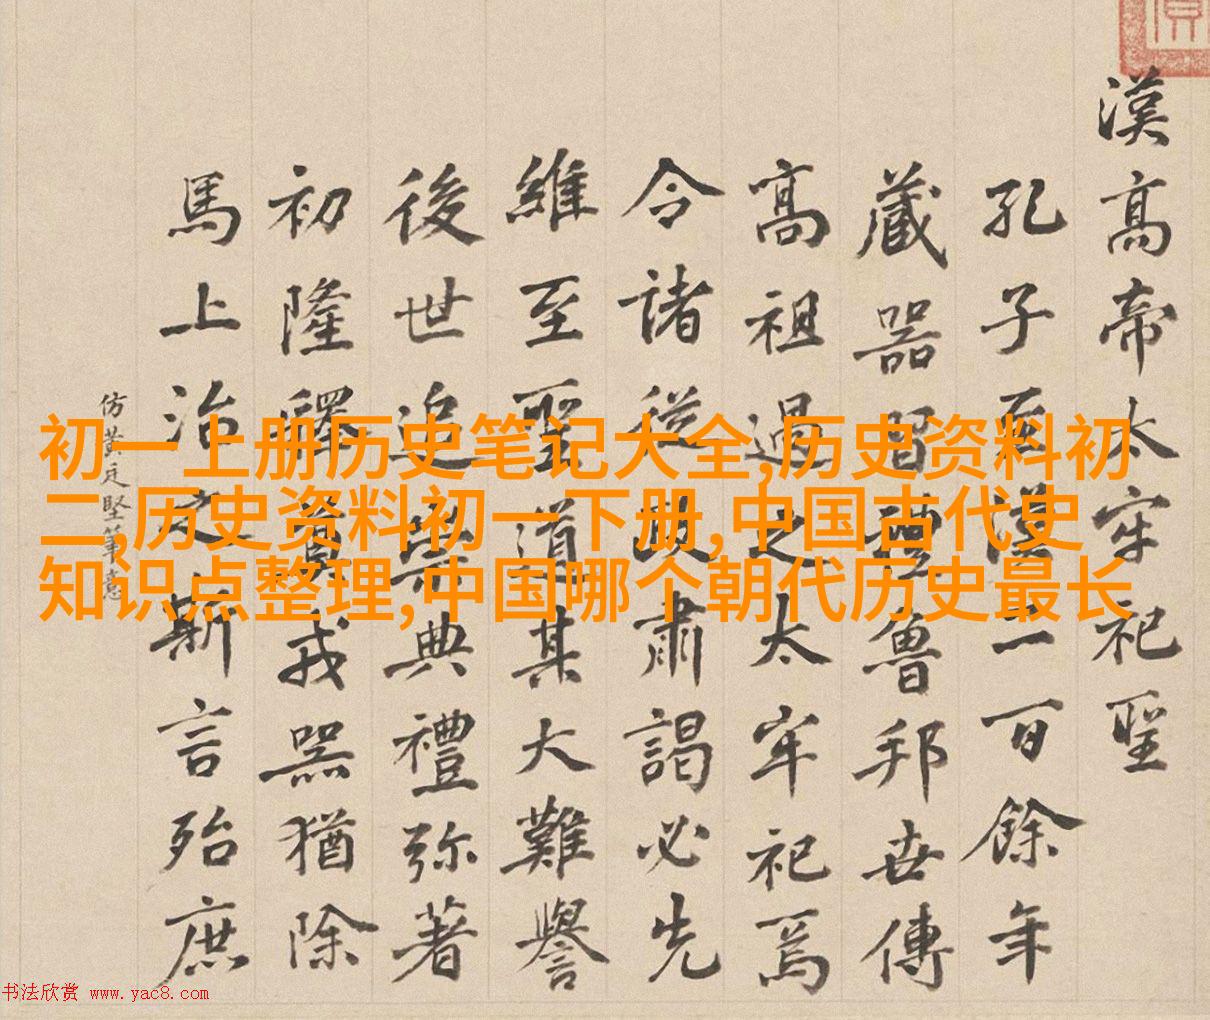 漢高帝太牢祀聖
孔子至漢二百餘年
藏器習禮魯邦世傳
高祖過之太牢祀焉
令諸從政肅謁必先
維至聖道其大難譽
後世追典禮弥著
初隆釋奠戎器猶除
馬上治之斯言殆庶
仿黄廷堅筆意
初一上册历史笔记大全,历史资料初
二,历史资料初一下册,中国古代史
知识点整理,中国哪个朝代历史最长
书法欣赏 www.yac8.com